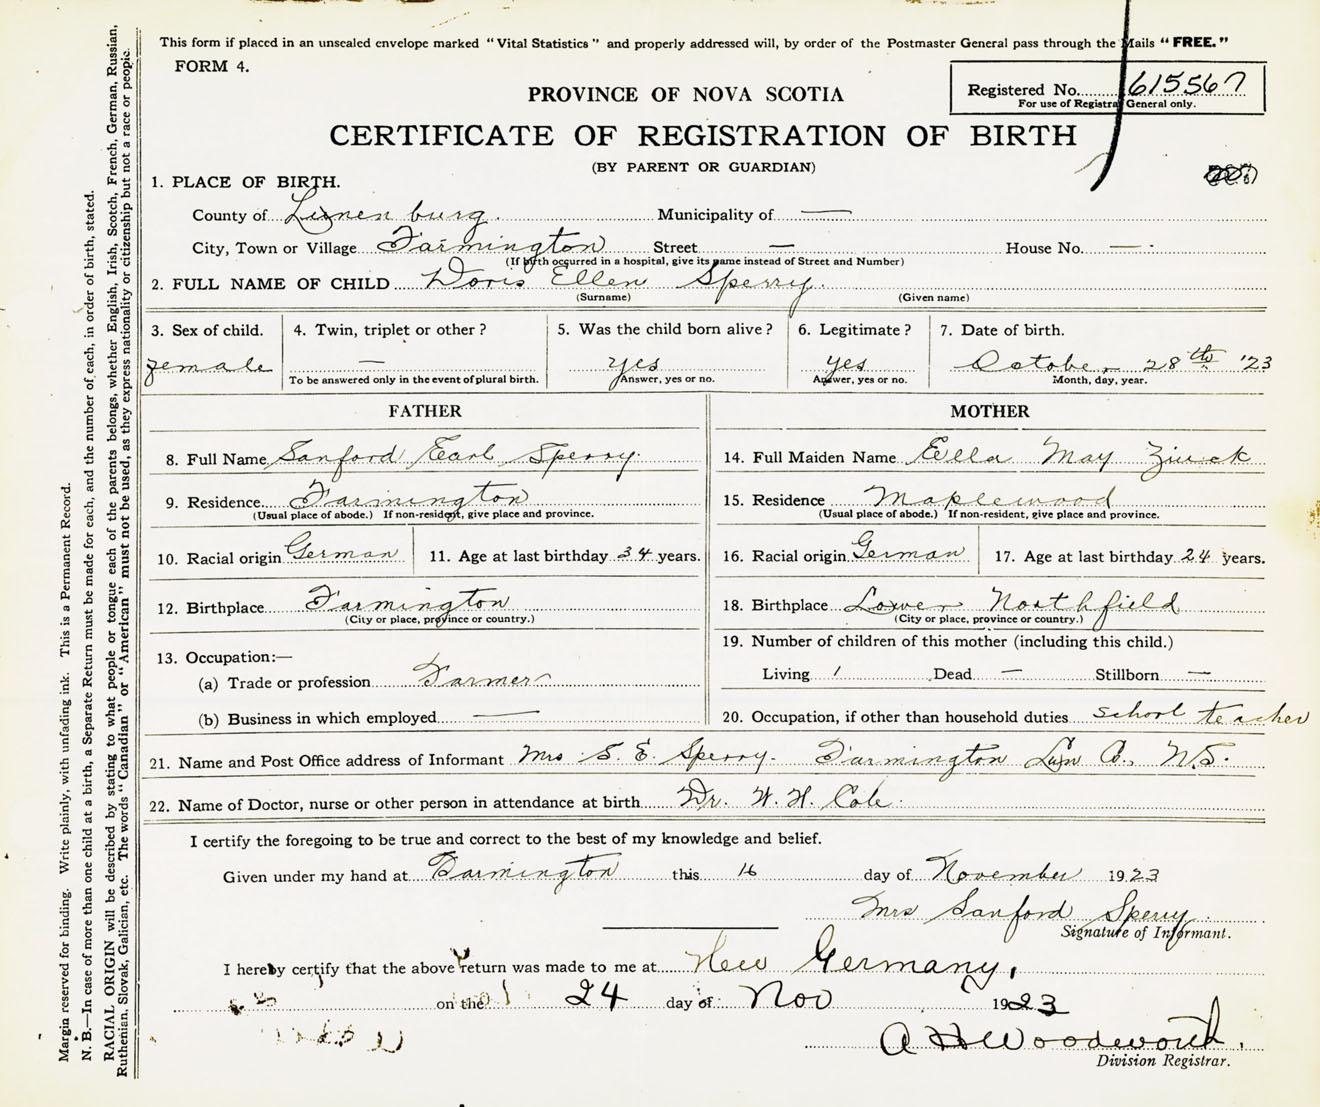 This form if placed in an unsealed envelope marked "Vital Statistics" and properly addressed will, by order of the Postmaster General pass through the Mails "FREE."
FORM 4.
Registered No. 615567
For use of Registrar General only.
PROVINCE OF NOVA SCOTIA
CERTIFICATE OF REGISTRATION OF BIRTH
(BY PARENT OR GUARDIAN)
1. PLACE OF BIRTH.
County of Lunenburg. Municipality of —
City, Town or Village Farmington Street — House No. —
(If birth occurred in a hospital, give its name instead of Street and Number)
2. FULL NAME OF CHILD Doris Ellen Sperry.
(Surname) (Given name)
3. Sex of child. 4. Twin, triplet or other? 5. Was the child born alive? 6. Legitimate? 7. Date of birth.
female — yes yes October 28th '23
To be answered only in the event of plural birth. Answer, yes or no. Answer, yes or no. Month, day, year.
FATHER MOTHER
8. Full Name Sanford Earl Sperry. 14. Full Maiden Name Ella May Zinck
9. Residence Farmington 15. Residence Maplewood
(Usual place of abode.) If non-resident, give place and province. (Usual place of abode.) If non-resident, give place and province.
10. Racial origin German 11. Age at last birthday 34 years. 16. Racial origin German 17. Age at last birthday 24 years.
12. Birthplace Farmington 18. Birthplace Lower Northfield
(City or place, province or country.) (City or place, province or country.)
13. Occupation:— 19. Number of children of this mother (including this child.)
(a) Trade or profession Farmer Living 1 Dead — Stillborn —
(b) Business in which employed — 20. Occupation, if other than household duties school teacher
21. Name and Post Office address of Informant Mrs S. E. Sperry. Farmington Lun Co., N.S.
22. Name of Doctor, nurse or other person in attendance at birth Dr. W. H. Cole.
I certify the foregoing to be true and correct to the best of my knowledge and belief.
Given under my hand at Farmington this 16 day of November 1923
Mrs Sanford Sperry
Signature of Informant.
I hereby certify that the above return was made to me at New Germany,
on the 24 day of Nov 1923
A H Woodworth.
Division Registrar.
Margin reserved for binding. Write plainly, with unfading ink. This is a Permanent Record.
N. B.—In case of more than one child at a birth, a Separate Return must be made for each, and the number of each, in order of birth, stated.
RACIAL ORIGIN will be described by stating to what people or tongue each of the parents belongs, whether English, Irish, Scotch, French, German, Russian,
Ruthenian, Slovak, Galician, etc. The words "Canadian" or "American" must not be used, as they express nationality or citizenship but not a race or people.